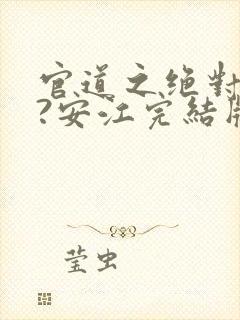 官道之绝對
?安江完結
莹虫